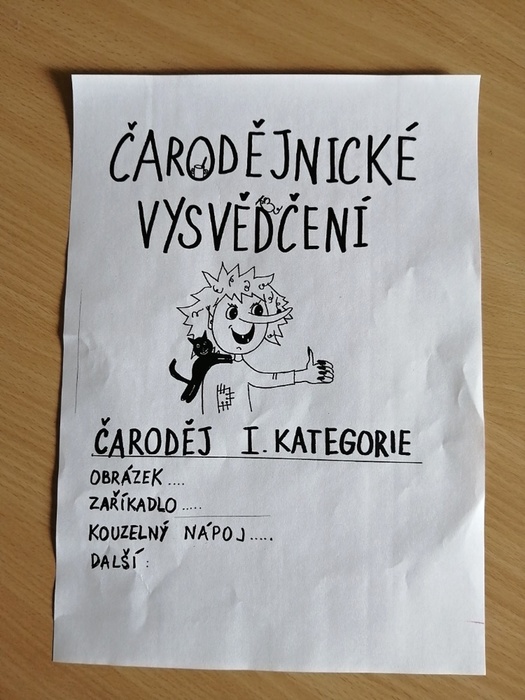 ČARODĚJNICKÉ
VYSVĚDČENÍ
ČARODĚJ I. KATEGORIE
OBRÁZEK ....
ZAŘÍKADLO .....
KOUZELNÝ NÁPOJ .....
DALŠÍ :